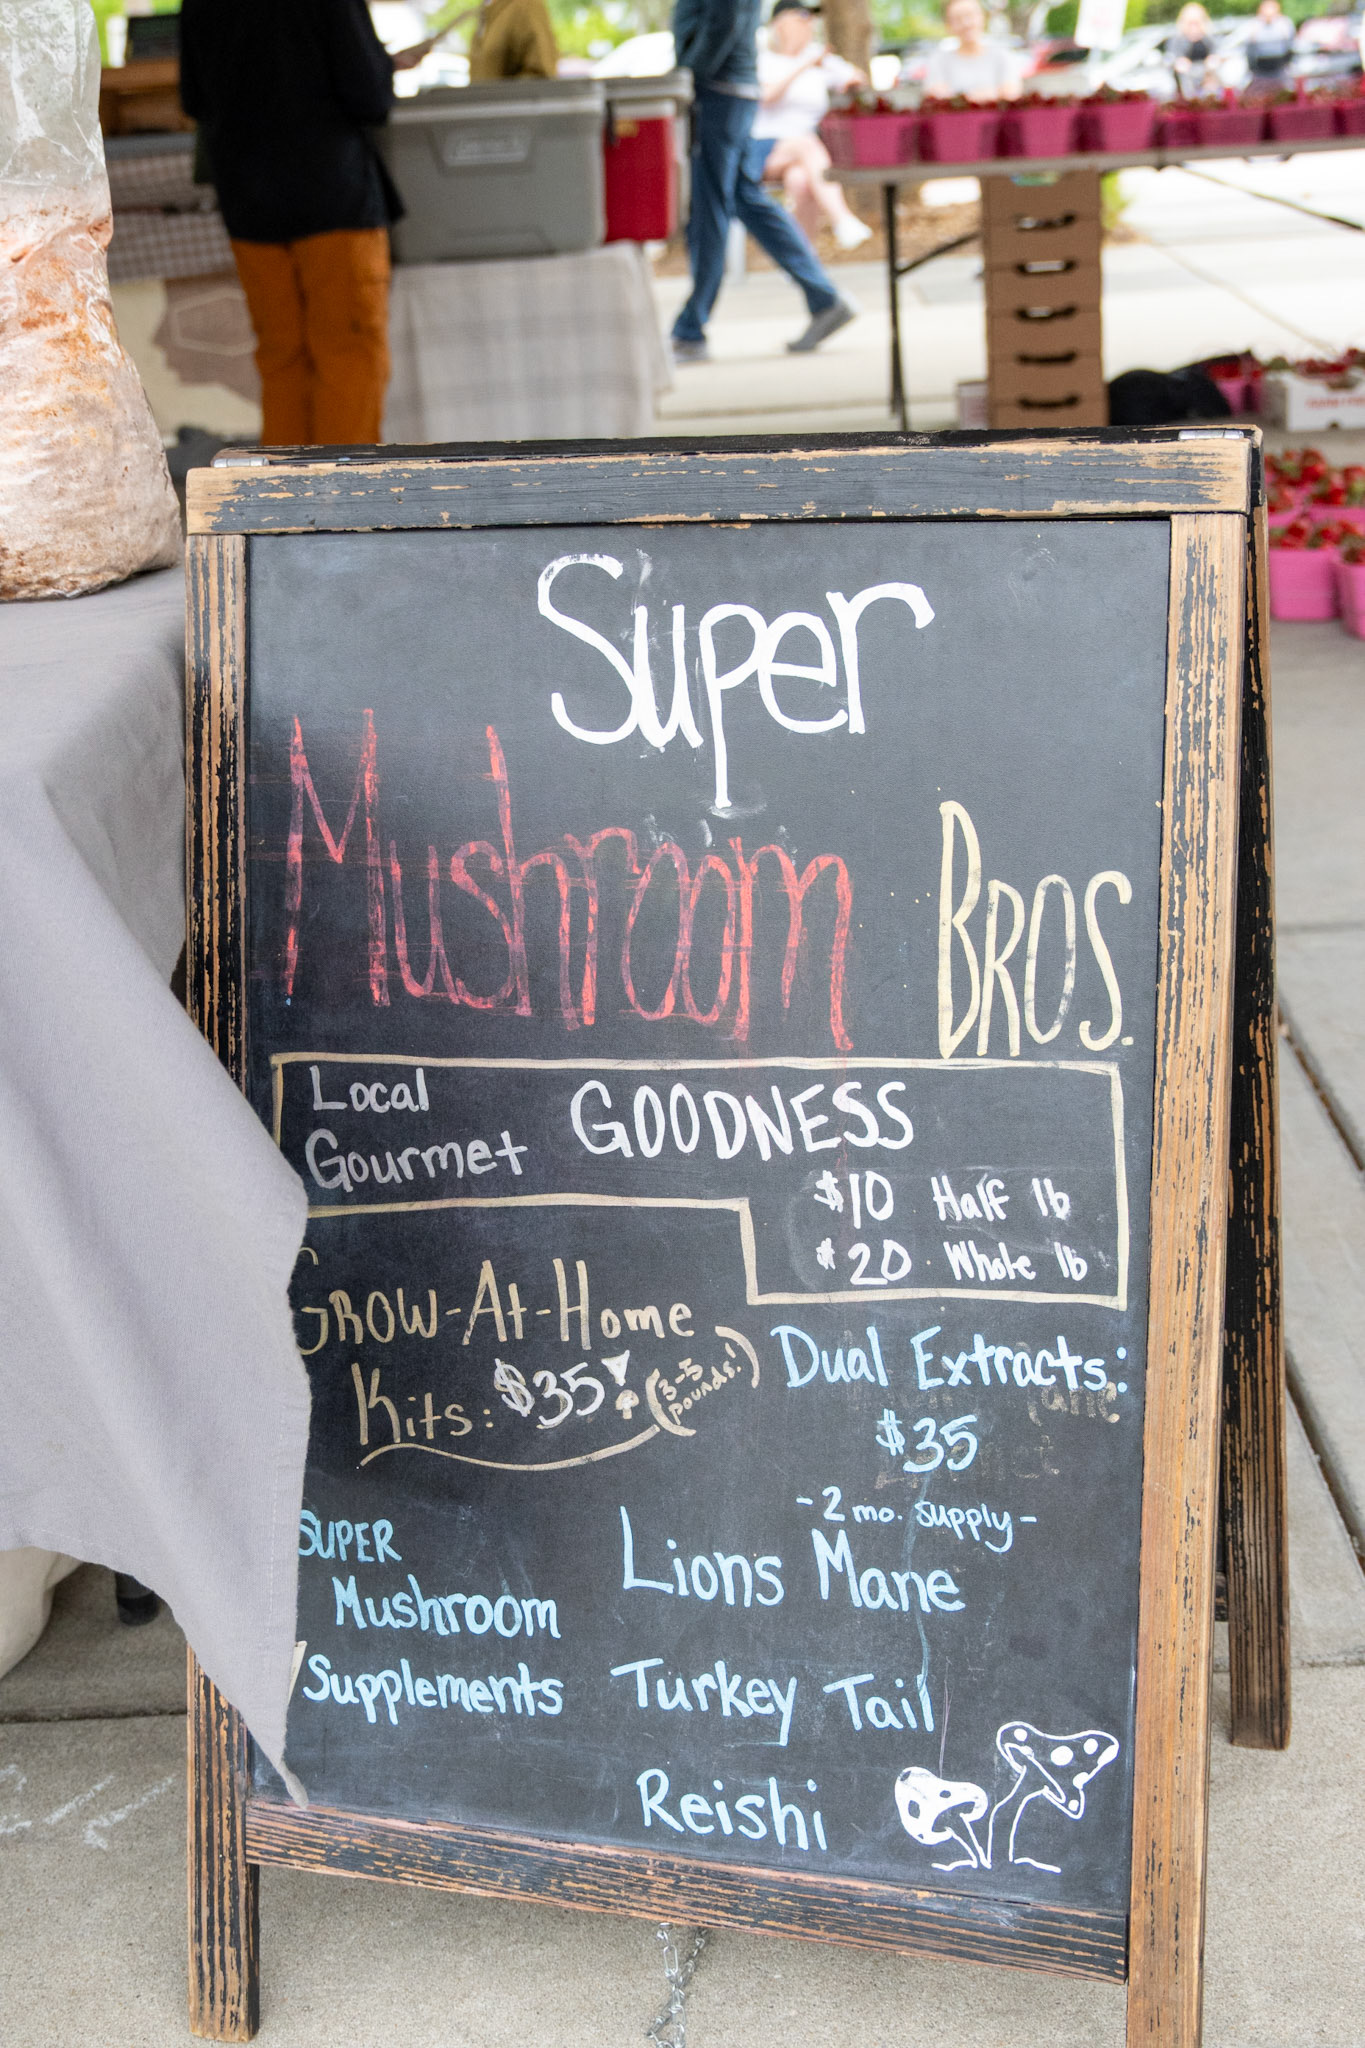 Super
Mushroom BROS.
Local
Gourmet GOODNESS
$10 Half lb
$20 Whole lb
GROW-At-Home
Kits: $35! (3-5 pounds!)
Dual Extracts:
$35
-2 mo. supply-
SUPER
Mushroom
Supplements
Lions Mane
Turkey Tail
Reishi